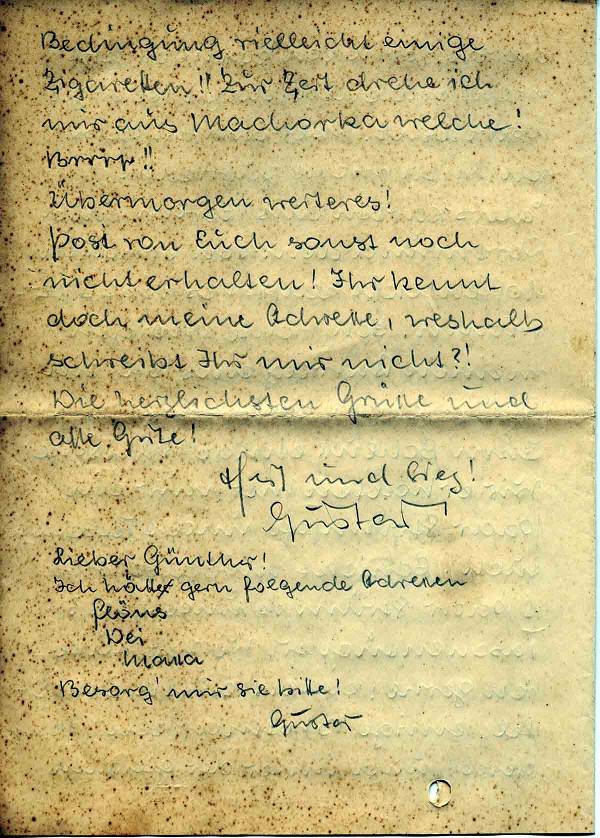 Bedingung vielleicht einige
Zigaretten!! Zur Zeit drehe ich
mir aus Machorka welche!
Brrrr!!
Übermorgen weiteres!
Post von Euch sonst noch
nicht erhalten! Ihr kennt
doch meine Adresse, weshalb
schreibt Ihr mir nicht?!
Die herzlichsten Grüße und
alle Gute!
Heil und Sieg!
Gustav
Lieber Günther!
Ich hätte gern folgende Adressen
Besorg' mir sie bitte!
Gustav